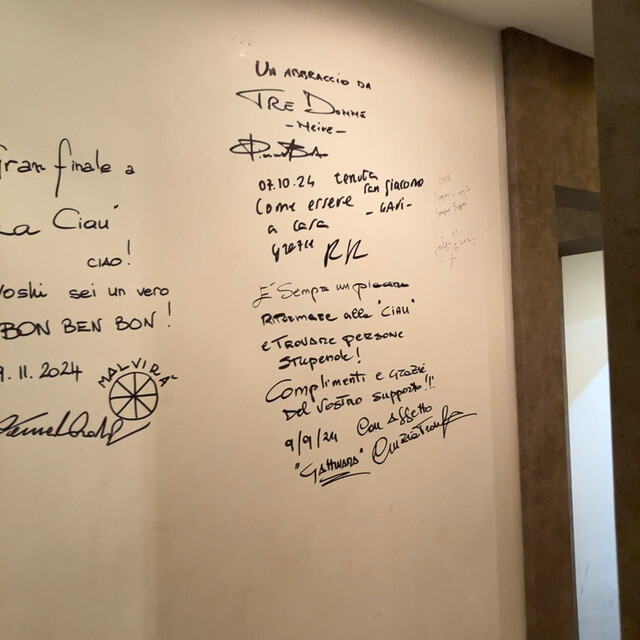 Gran finale a
La Ciau
CIAO!
Yoshi sei un vero
BON BEN BON!
9.11.2024
MALVIRA'
UN ABBRACCIO DA
TRE DONNE
- Neive -
07.10.24 tenuta
san giacomo
Come essere - GAVI -
a casa
grazie
RR
E' Sempre un piacere
RITORNARE alla "CIAU"
E TROVARE PERSONE
STUPENDE!
Complimenti e Grazie
Del Vostro supporto!!!
9/9/24 Con affetto
"GATTINARA"